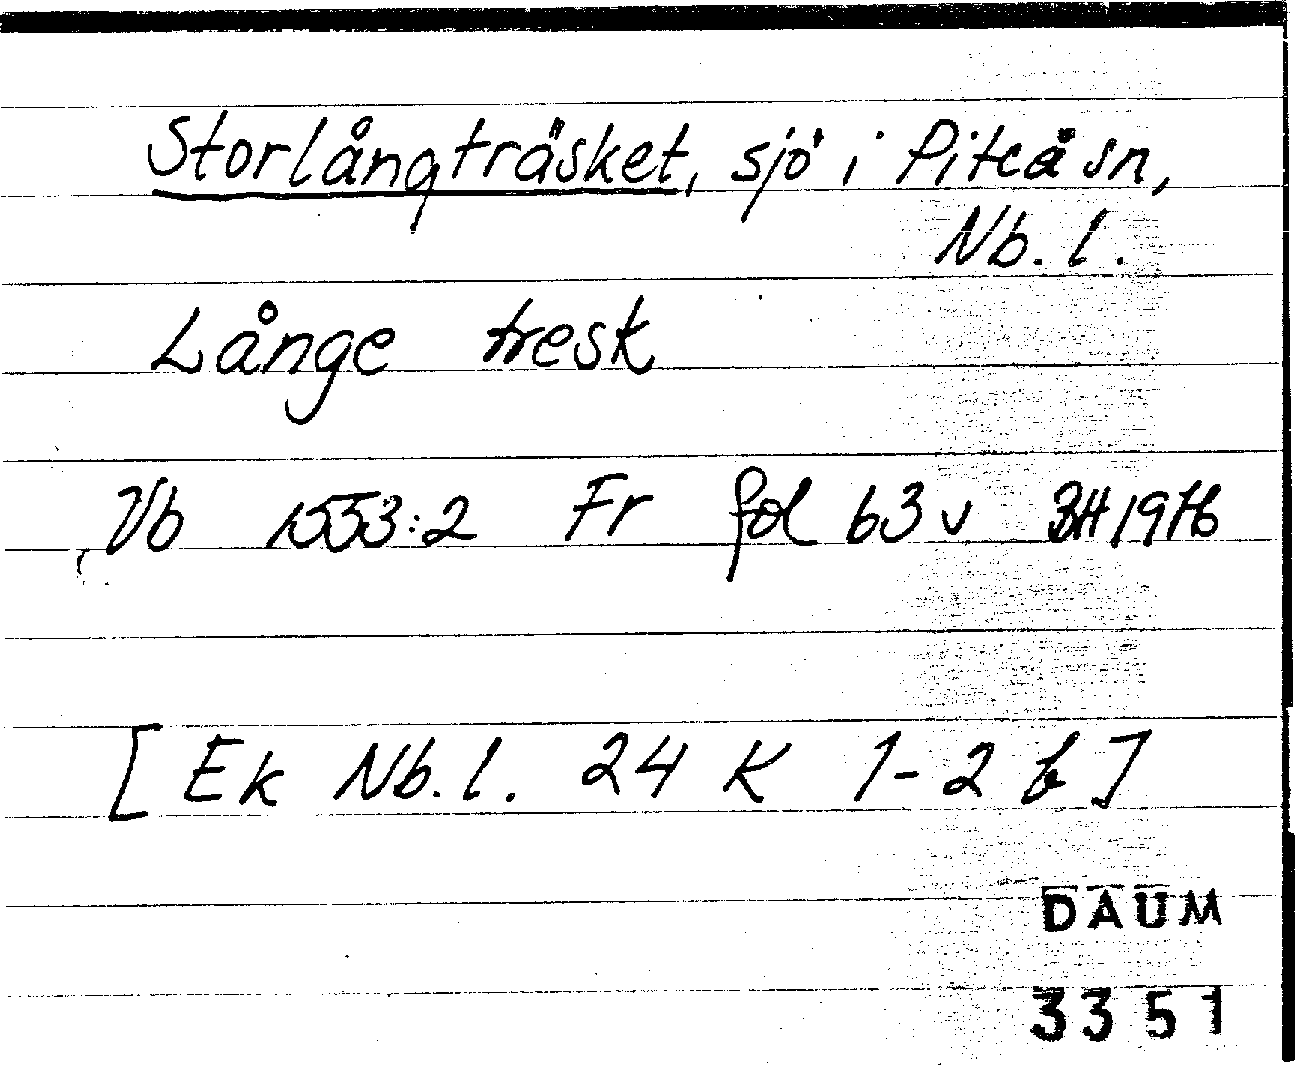 Storlångträsket, sjö i Piteå sn,
Nb. l.
Långe tresk
Vb 1553:2 Fr fol 63 v BH 1976
[Ek Nb. l. 24 K 1-2 b]
DAUM
3351